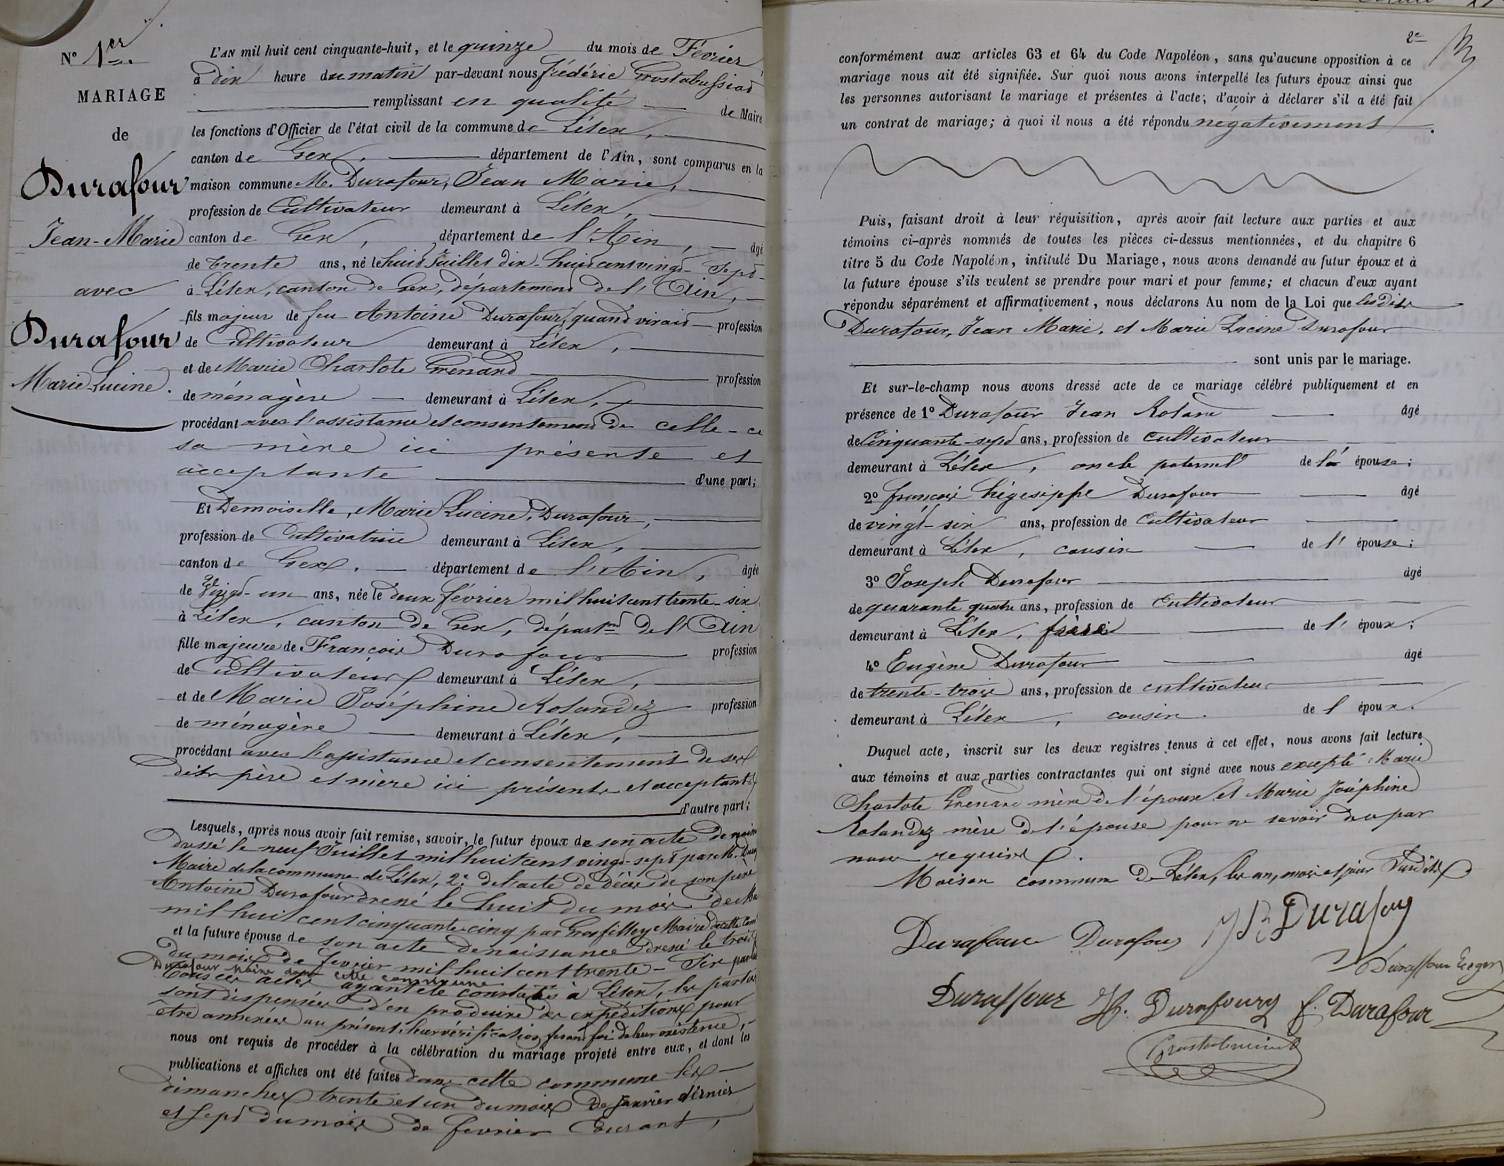 N° 1er
MARIAGE
de
Durafour
Jean-Marie
avec
Durafour
Marie Lucine.
L'AN mil huit cent cinquante-huit, et le quinze du mois de Février,
à dix heure du matin par-devant nous Frédéric
remplissant en qualité de Maire
les fonctions d'Officier de l'état civil de la commune de Lélex,
canton de Gex, département de l'Ain, sont comparus en la
maison commune M. Durafour, Jean Marie,
profession de Cultivateur demeurant à Lélex,
canton de Gex, département de l'Ain, âgé
de trente ans, né le huit Juillet dix-huit cent vingt-sept
à Lélex, canton de Gex, département de l'Ain,
fils majeur de feu Antoine Durafour, quand vivait profession
de Cultivateur demeurant à Lélex,
et de Marie Charlote Grénard profession
de ménagère demeurant à Lélex,
procédant avec l'assistance et consentement de celle-ce
sa mère ici présente et
acceptante d'une part;
Et Demoiselle, Marie Lucine, Durafour,
profession de Cultivatrice demeurant à Lélex,
canton de Gex, département de l'Ain, âgée
de vingt-un ans, née le deux février mil huit cent trente-six
à Lélex, canton de Gex, départmt de l'Ain
fille majeure de François Durafour profession
de Cultivateur demeurant à Lélex,
et de Marie Joséphine Rolandez profession
de ménagère demeurant à Lélex,
procédant avec l'assistance et consentement de ses
dits père et mère ici présents et acceptants
d'autre part;
Lesquels, après nous avoir fait remise, savoir, le futur époux de son acte de naiss
dressé le neuf Juillet mil huit cent vingt-sept par M.
Maire de la commune de Lélex, 2° de l'acte de décès de son père
Antoine Durafour dressé le huit du mois de
mil huit cent cinquante-cinq par Maire de cette
et la future épouse de son acte de naissance dressé le trois
du mois de février mil huit cent trente-six par
Durafour Maire dans cette commune
Tous ces actes ayant été constatés à Lélex, les parties
sont dispensées d'en produire des expéditions pour
être annexées au présent, leur vérification fesant foi de leur existence,
nous ont requis de procéder à la célébration du mariage projeté entre eux, et dont les
publications et affiches ont été faites dans cette commune les
dimanches trente et un du mois de janvier dernier
et sept du mois de février courant,
2e
conformément aux articles 63 et 64 du Code Napoléon, sans qu'aucune opposition à ce
mariage nous ait été signifiée. Sur quoi nous avons interpellé les futurs époux ainsi que
les personnes autorisant le mariage et présentes à l'acte; d'avoir à déclarer s'il a été fait
un contrat de mariage; à quoi il nous a été répondu négativement.
Puis, faisant droit à leur réquisition, après avoir fait lecture aux parties et aux
témoins ci-après nommés de toutes les pièces ci-dessus mentionnées, et du chapitre 6
titre 5 du Code Napoléon, intitulé Du Mariage, nous avons demandé au futur époux et à
la future épouse s'ils veulent se prendre pour mari et pour femme; et chacun d'eux ayant
répondu séparément et affirmativement, nous déclarons Au nom de la Loi que lesdits
Durafour, Jean Marie, et Marie Lucine Durafour
sont unis par le mariage.
Et sur-le-champ nous avons dressé acte de ce mariage célébré publiquement et en
présence de 1° Durafour Jean Roland âgé
de Cinquante-sept ans, profession de cultivateur
demeurant à Lélex, oncle paternel de l'é épouse;
2° françois hégésippe Durafour âgé
de vingt-six ans, profession de Cultivateur
demeurant à Lélex, cousin de l'épouse;
3° Joseph Durafour âgé
de quarante quatre ans, profession de Cultivateur
demeurant à Lélex, frère de l'époux;
4° Eugène Durafour âgé
de trente-trois ans, profession de cultivateur
demeurant à Lélex, cousin de l'époux.
Duquel acte, inscrit sur les deux registres tenus à cet effet, nous avons fait lecture
aux témoins et aux parties contractantes qui ont signé avec nous excepté Marie
Charlote Grénard mère de l'époux et Marie Joséphine
Rolandez mère de l'épouse pour ne savoir de par
nous requises.
Maison commune de Lélex, les an, mois et jour susdits
Durafour Durafour JR Durafour
Duraffour
Duraffour H. Durafourg f. Durafour